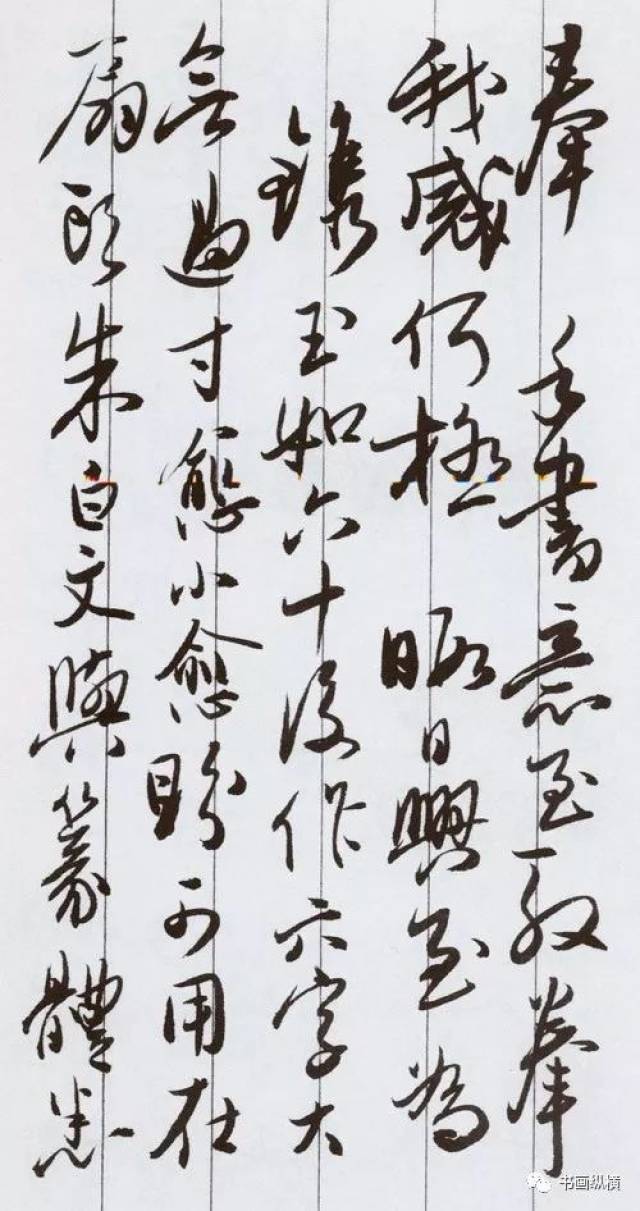 奉 手書意至殷拳
我感何極 暇日興至為
鐫玉如六十後作六字大
無過寸愈小愈盼可用在
扇頭朱白文與篆體悉
书画纵横